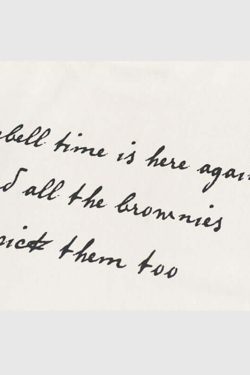 bell time is here agai
d all the brownies
ick them too